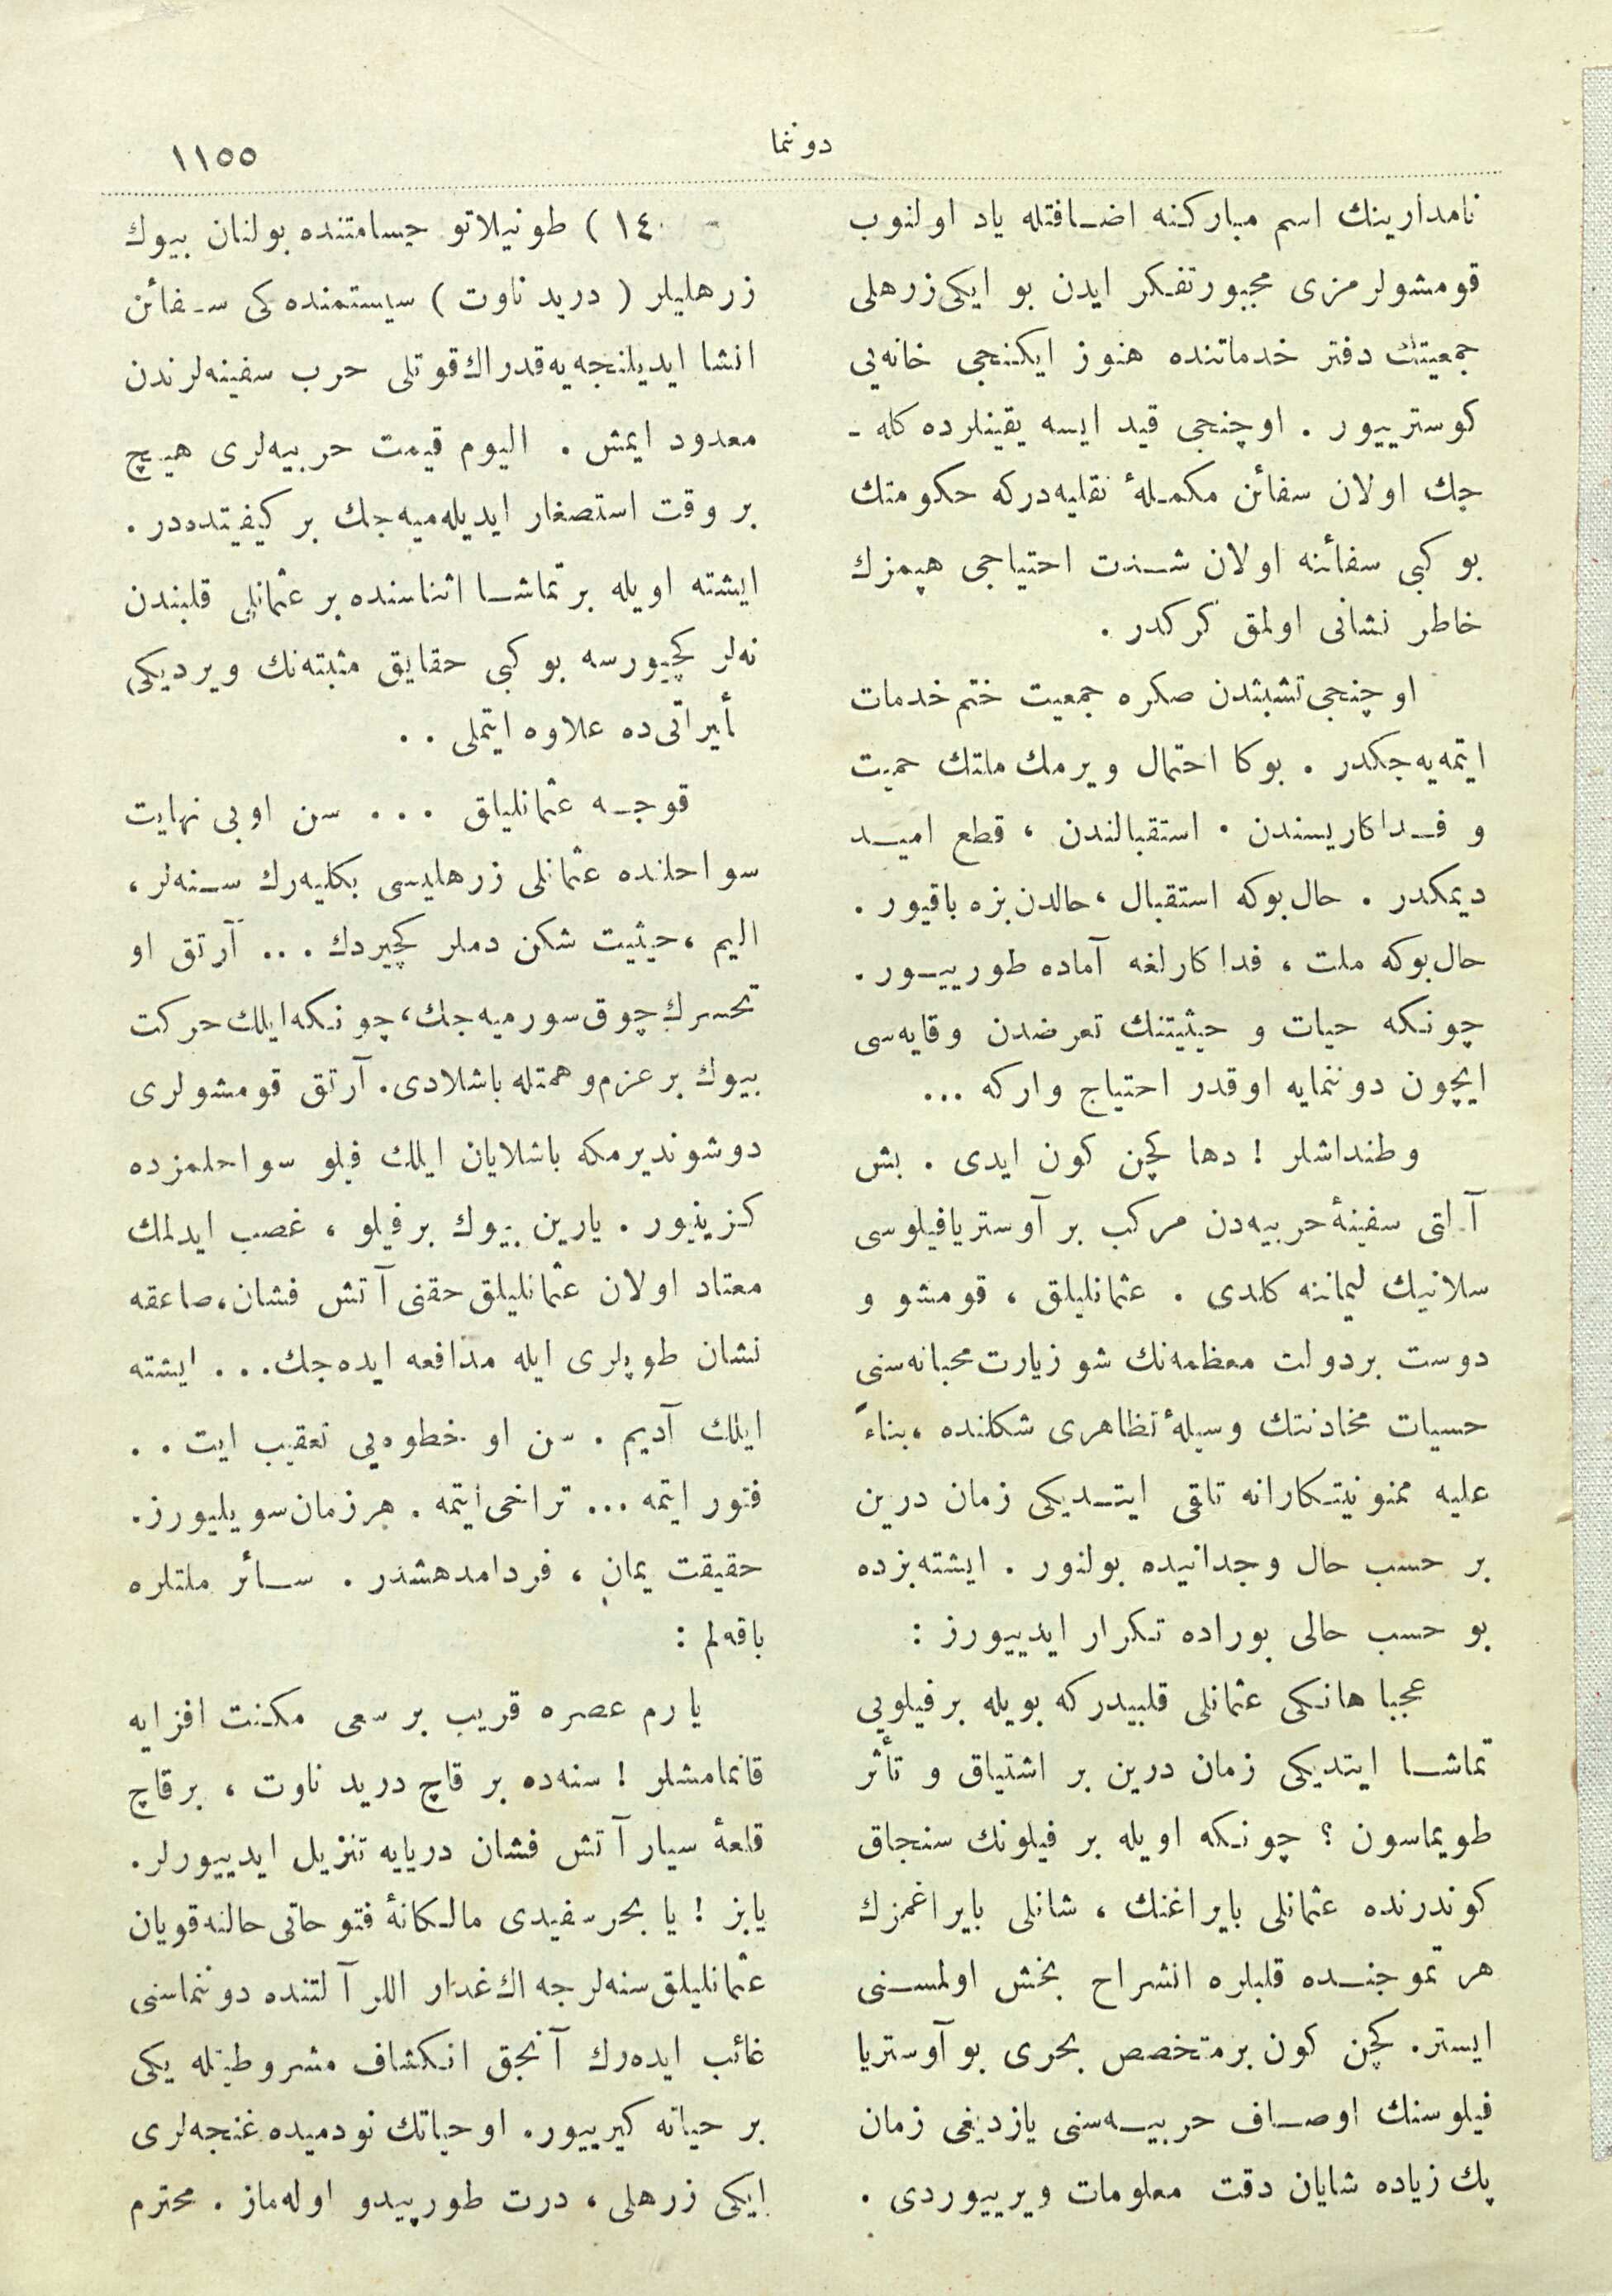 دوننما
١١٥٥
نامدارينك اسم مباركنه اضافتله ياد اولنوب
قومشولرمزى مجبور تفكر ايدن بو ايكى زرهلى
جمعيتك دفتر خدماتنده هنوز ايكنجى خانه‌يى
كوسترييور . اوچنجى قيد ايسه يقينلرده كله ـ
جك اولان سفائن مكملهٔ نقليه‌دركه حكومتك
بو كبى سفائنه اولان شدت احتياجى هپمزك
خاطر نشانى اولمق كركدر .
اوچنجى تشبثدن صكره جمعيت ختم خدمات
ايتمه‌يه‌جكدر . بوكا احتمال ويرمك ملتك حميت
و فداكاريسندن . استقبالندن ، قطع اميد
ديمكدر . حال‌بوكه استقبال ، حالدن بزه باقيور .
حال‌بوكه ملت ، فداكارلغه آماده طورييور .
چونكه حيات و حيثيتنك تعرضدن وقايه‌سى
ايچون دوننمايه اوقدر احتياج واركه ...
وطنداشلر ! دها كچن كون ايدى . بش
آلتى سفينهٔ حربيه‌دن مركب بر آوستريا فيلوسى
سلانيك ليماننه كلدى . عثمانليلق ، قومشو و
دوست بر دولت معظمه‌نك شو زيارت محبانه‌سنى
حسيات مخادنتك وسيلهٔ تظاهرى شكلنده ، بناءً
عليه ممنونيتكارانه تلقى ايتديكى زمان درين
بر حسب حال وجدانيده بولنور . ايشته بزده
بو حسب حالى بوراده تكرار ايدييورز :
عجبا هانكى عثمانلى قلبيدركه بويله بر فيلويى
تماشا ايتديكى زمان درين بر اشتياق و تأثر
طويماسون ؟ چونكه اويله بر فيلونك سنجاق
كوندرنده عثمانلى بايراغنك ، شانلى بايراغمزك
هر تموجنده قلبلره انشراح بخش اولمسنى
ايستر . كچن كون بر متخصص بحرى بو آوستريا
فيلوسنك اوصاف حربيه‌سنى يازديغى زمان
پك زياده شايان دقت معلومات ويرييوردى .
١٤٠ ) طونيلاتو جسامتنده بولنان بيوك
زرهليلر ( دريد ناوت ) سيستمنده كى سفائن
انشا ايديلنجه‌يه قدر اك قوتلى حرب سفينه‌لرندن
معدود ايمش . اليوم قيمت حربيه‌لرى هيچ
بر وقت استصغار ايديله‌ميه‌جك بر كيفيتده‌در .
ايشته اويله بر تماشا اثناسنده بر عثمانلى قلبندن
نه‌لر كچيورسه بو كبى حقايق مثبته‌نك ويرديكى
تأثيراتى ده علاوه ايتملى . .
قوجه عثمانليلق ... سن او بى نهايت
سواحلنده عثمانلى زرهليسى بكليه‌رك سنه‌لر ،
اليم ، حيثيت شكن دملر كچيردك ... آرتق او
تحسرك چوق سورميه‌جك ، چونكه ايلك حركت
بيوك بر عزم و همتله باشلادى . آرتق قومشولرى
دوشونديرمكه باشلايان ايلك فيلو سواحلمزده
كزينيور . يارين بيوك بر فيلو ، غصب ايدلمك
معتاد اولان عثمانليلق حقنى آتش فشان ، صاعقه
نشان طوپلرى ايله مدافعه ايده‌جك ... ايشته
ايلك آديم . سن او خطوه‌يى تعقيب ايت . .
فتور ايتمه ... تراخى ايتمه . هر زمان سويليورز .
حقيقت يمان ، فردا مدهشدر . سائر ملتلره
باقه‌لم :
يارم عصره قريب بر سعى مكنت افزايه
قانمامشلر ! سنه‌ده بر قاچ دريد ناوت ، بر قاچ
قلعهٔ سيار آتش فشان دريايه تنزيل ايدييورلر .
يا بز ! يا بحر سفيدى مالكانهٔ فتوحاتى حالنه قويان
عثمانليلق سنه‌لرجه اك غدار اللر آلتنده دوننماسنى
غائب ايده‌رك آنجق انكشاف مشروطيتله يكى
بر حياته كيرييور . او حياتك نودميده غنجه‌لرى
ايكى زرهلى ، درت طورپيدو اوله‌ماز . محترم